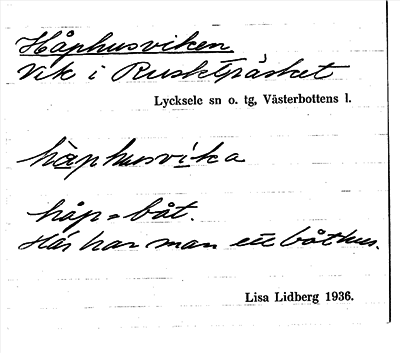 Håphusviken
Vik i Ruskträsket
Lycksele sn o. tg, Västerbottens l.
håphusvika
håp = båt.
Här har man ett båthus.
Lisa Lidberg 1936.